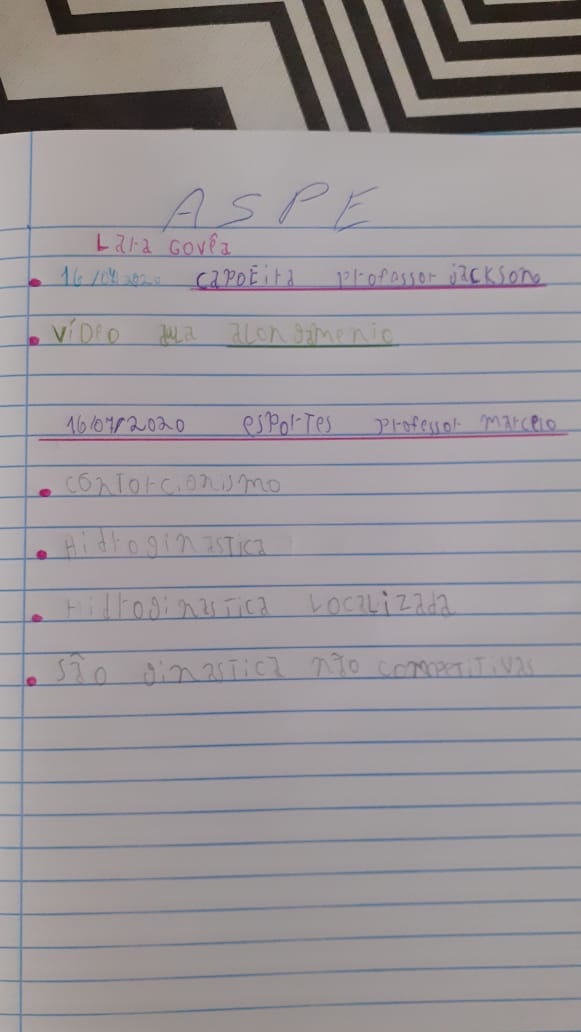 ASPE
Lara Govêa
16/07/2020 CAPOEira professor JACKSON
VÍDEO aula alongamento
16/07/2020 esporTes professor marcelo
CONTorcionismo
HidroginasTica
HidroginasTica LOCALIZada
são ginasTica não compeTiTivas